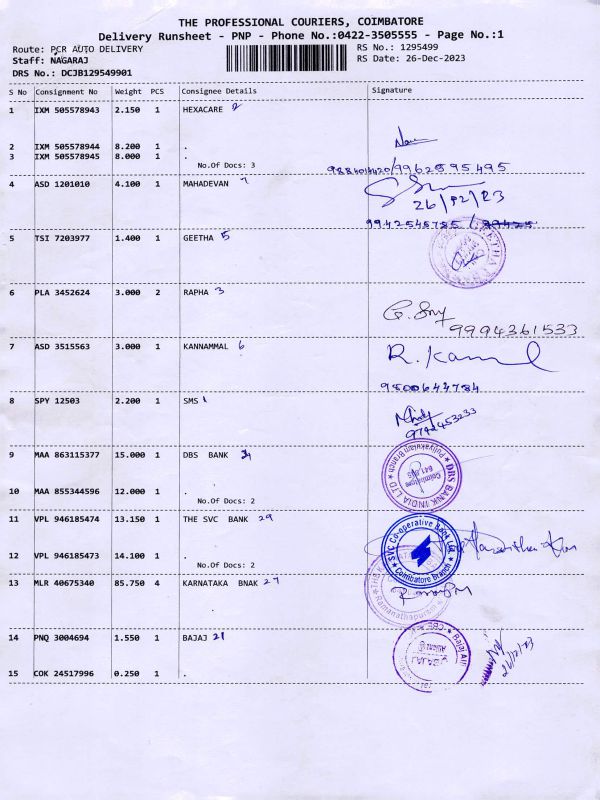 THE PROFESSIONAL COURIERS, COIMBATORE
Delivery Runsheet - PNP - Phone No.:0422-3505555 - Page No.:1
Route: PCR AUTO DELIVERY RS No.: 1295499
Staff: NAGARAJ RS Date: 26-Dec-2023
DRS No.: DCJB129549901
S No Consignment No Weight PCS Consignee Details Signature
1 IXM 505578943 2.150 1 HEXACARE 2
2 IXM 505578944 8.200 1 .
3 IXM 505578945 8.000 1 .
No.Of Docs: 3
9962595495
4 ASD 1201010 4.100 1 MAHADEVAN 7
26/12/23
9942545785
5 TSI 7203977 1.400 1 GEETHA 5
GEETHA
6 PLA 3452624 3.000 2 RAPHA 3
9994361533
7 ASD 3515563 3.000 1 KANNAMMAL 6
R. Kamal
9500644784
8 SPY 12503 2.200 1 SMS 1
9792453233
9 MAA 863115377 15.000 1 DBS BANK
DBS BANK INDIA LTD Puliyakulam Branch Coimbatore
10 MAA 855344596 12.000 1 .
No.Of Docs: 2
11 VPL 946185474 13.150 1 THE SVC BANK 29
SVC Co-operative Bank Ltd. Coimbatore Branch
12 VPL 946185473 14.100 1 .
No.Of Docs: 2
13 MLR 40675340 85.750 4 KARNATAKA BNAK 27
Ramanathapuram
14 PNQ 3004694 1.550 1 BAJAJ 21
BAJAJ
26/12/23
15 COK 24517996 0.250 1 .